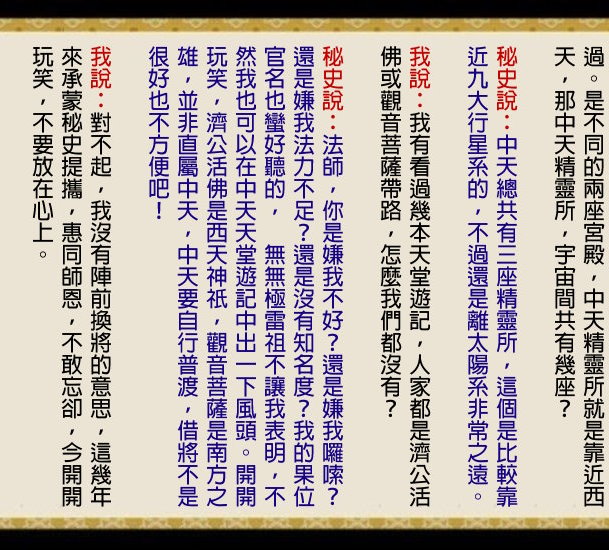 過。是不同的兩座宮殿,中天精靈所就是靠近西
天,那中天精靈所,宇宙間共有幾座?
秘史說:中天總共有三座精靈所,這個是比較靠
近九大行星系的,不過還是離太陽系非常之遠。
我說:我有看過幾本天堂遊記,人家都是濟公活
佛或觀音菩薩帶路,怎麼我們都沒有?
秘史說:法師,你是嫌我不好?還是嫌我囉嗦?
還是嫌我法力不足?還是沒有知名度?我的果位
官名也蠻好聽的, 無無極雷祖不讓我表明,不
然我也可以在中天天堂遊記中出一下風頭。開開
玩笑,濟公活佛是西天神祇,觀音菩薩是南方之
雄,並非直屬中天,中天要自行普渡,借將不是
很好也不方便吧!
我說:對不起,我沒有陣前換將的意思,這幾年
來承蒙秘史提攜,惠同師恩,不敢忘卻,今開開
玩笑,不要放在心上。